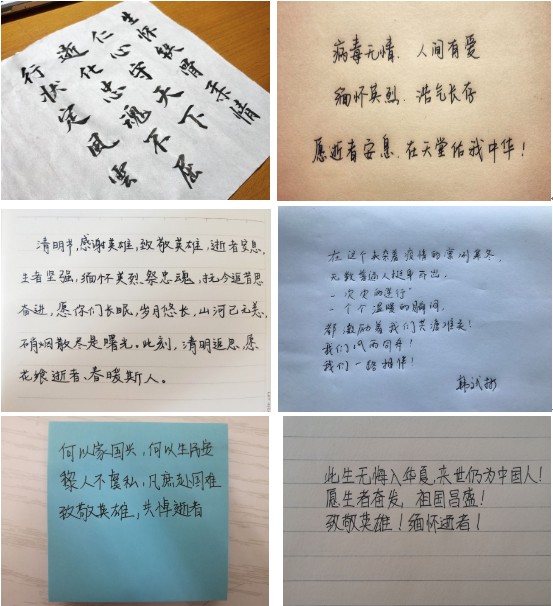 生怀侠骨柔情
仁心守天下
逝化忠魂不屈
行状定风雲
病毒无情，人间有爱
缅怀英烈，浩气长存
愿逝者安息，在天堂佑我中华！
清明节，感谢英雄，致敬英雄，逝者安息，
生者坚强，缅怀英烈祭忠魂，抚今追昔思
奋进，愿你们长眠，岁月悠长，山河已无恙，
烟散尽是曙光。此刻，清明追思，愿
花飨逝者、春暖斯人。
在这个夹杂着疫情的凛冽寒冬，
无数普通人挺身而出，
一次次的逆行
一个个温暖的瞬间，
都激励着我们共渡难关！
我们风雨同舟！
我们一路相伴！
何以家国兴，何以生民安
黎人不复私，凡庶赴国难
致敬英雄，共悼逝者
此生无悔入华夏，来世仍为中国人！
愿生者奋发，祖国昌盛！
致敬英雄！缅怀逝者！